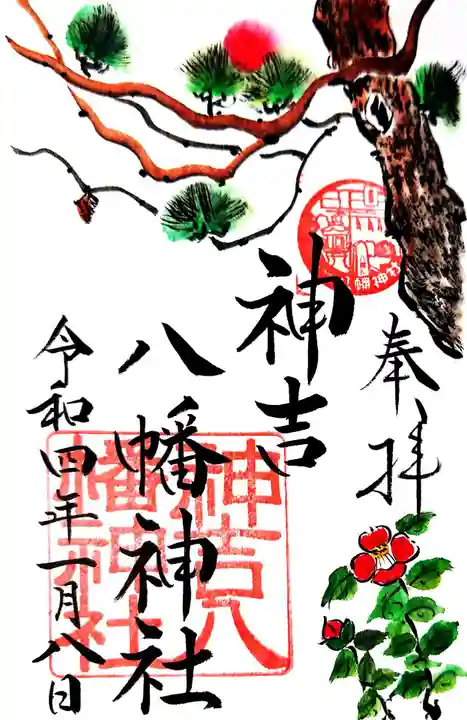 奉拝
神吉
八幡神社
令和四年一月八日
神吉八
幡神社